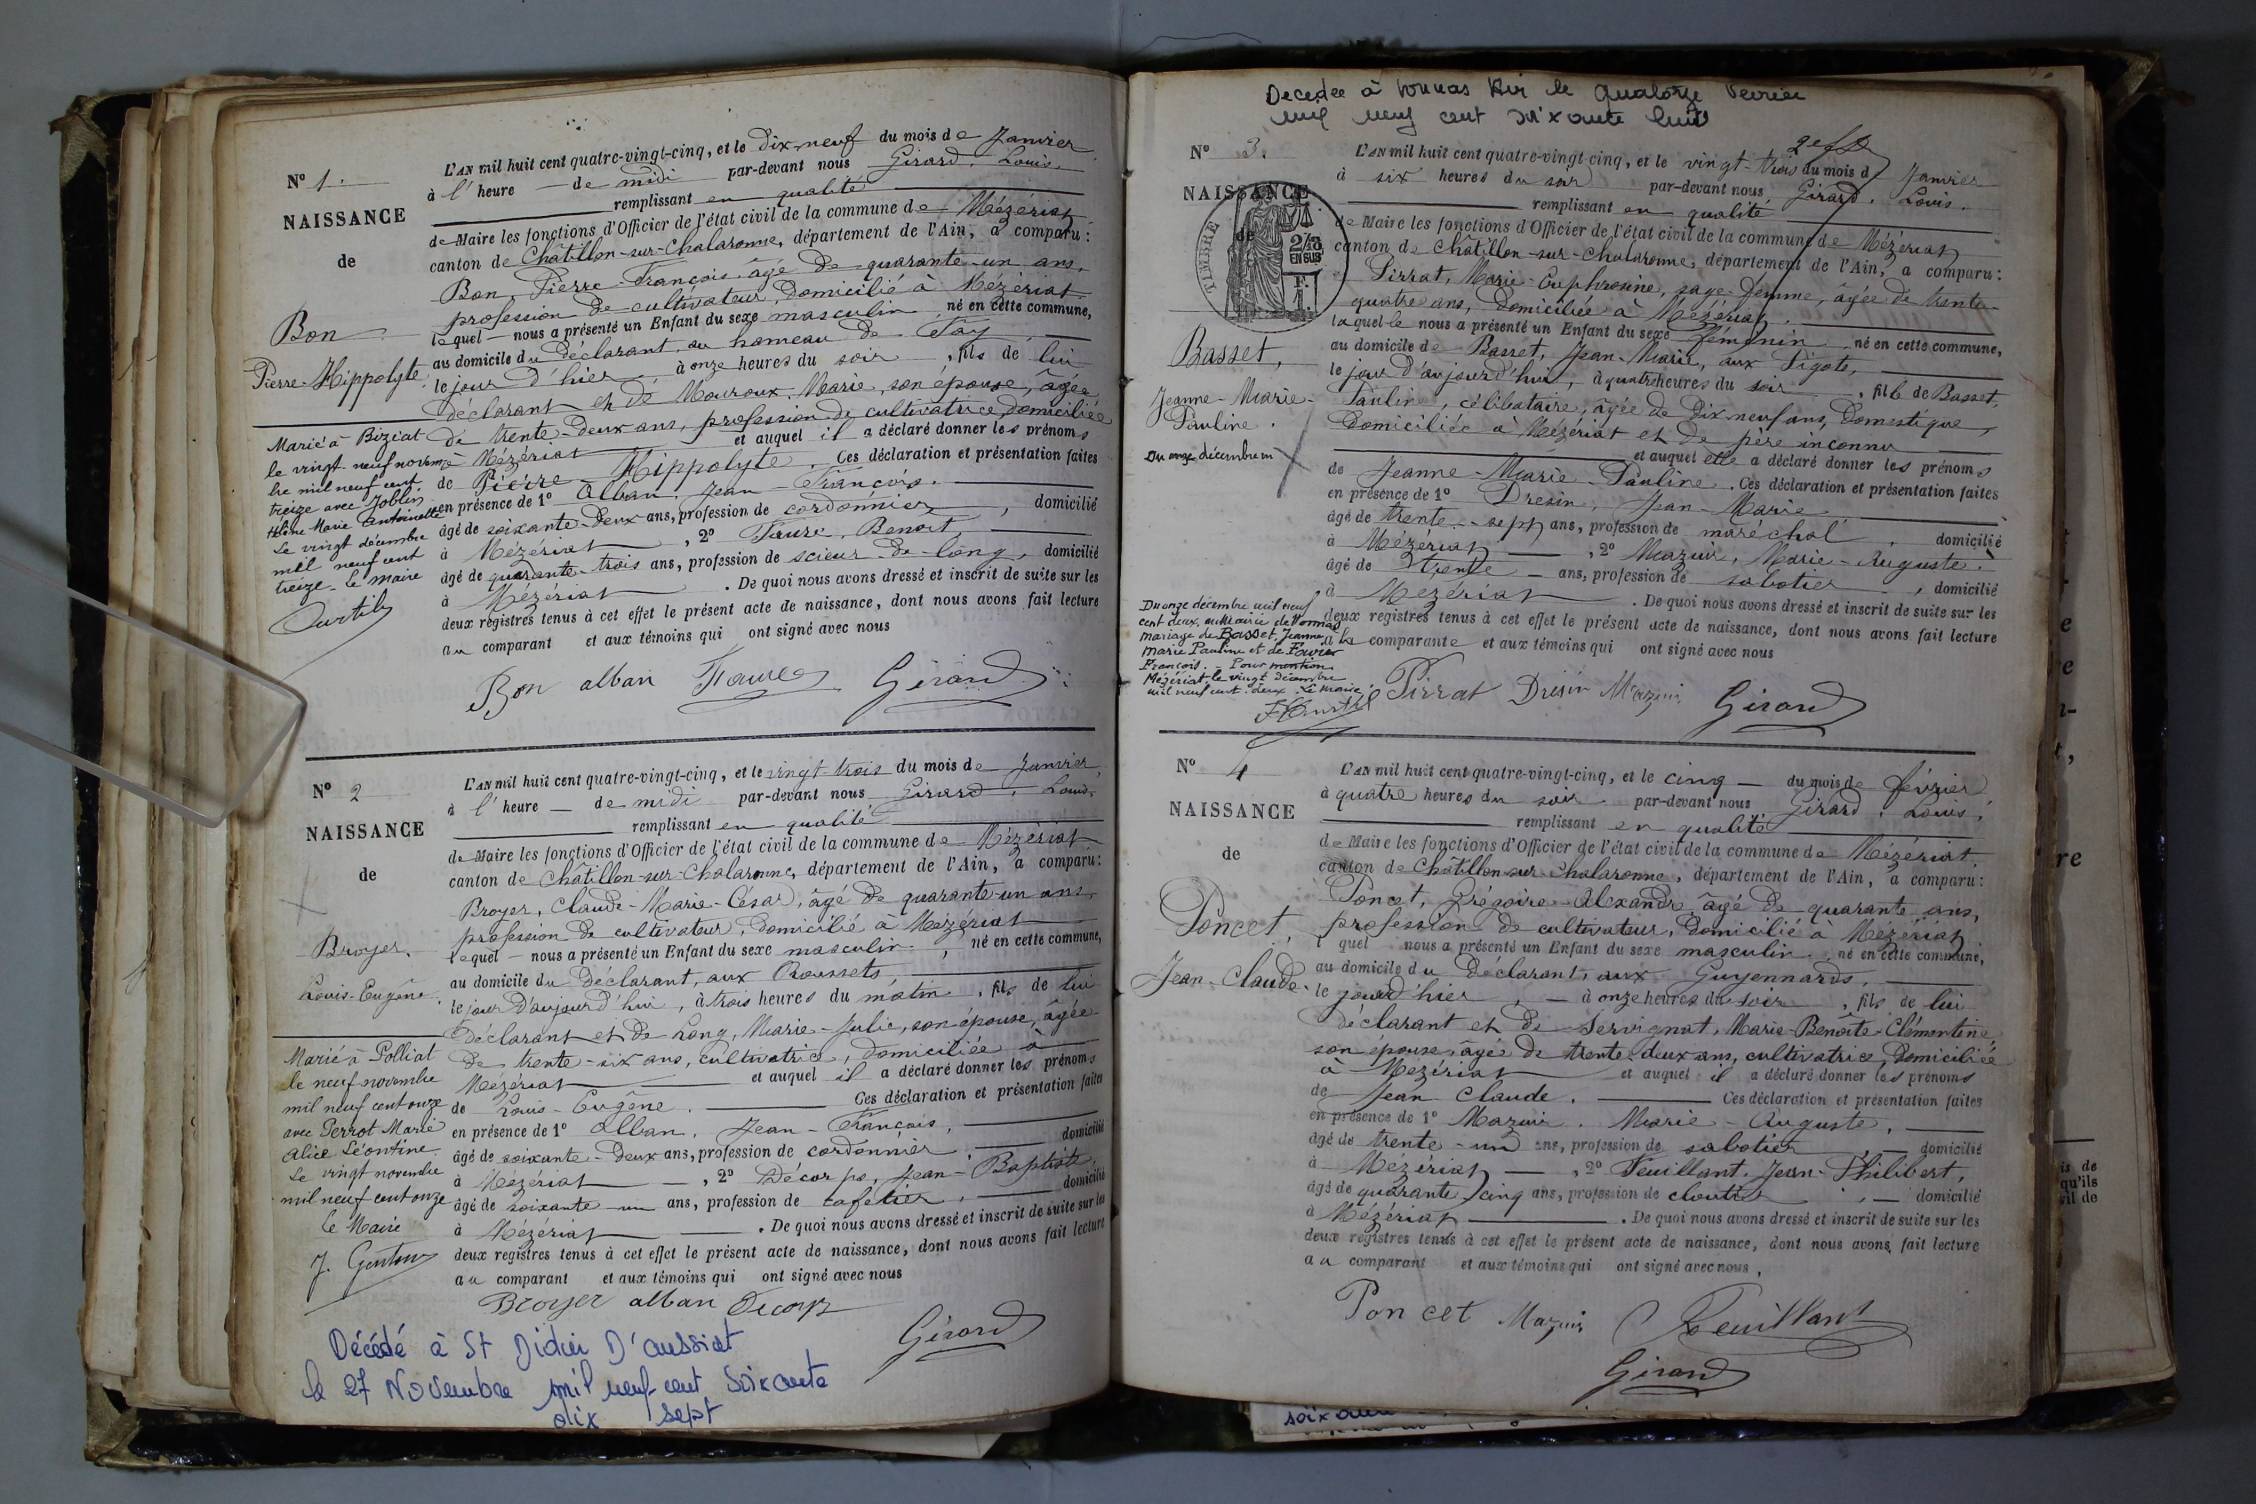 L'AN mil huit cent quatre-vingt-cinq, et le Dix-neuf du mois de Janvier,
N° 1.
à l' heure — de midi par-devant nous Girard, Louis,
remplissant en qualité
NAISSANCE
de Maire les fonctions d'Officier de l'état civil de la commune de Mézériat
canton de Châtillon-sur-Chalaronne, département de l'Ain, a comparu :
de
Bon, Pierre-François, âgé de quarante-un ans,
profession de cultivateur, domicilié à Mézériat
Bon
lequel — nous a présenté un Enfant du sexe masculin né en cette commune,
au domicile du déclarant, au hameau de Fay
Pierre-Hippolyte
le jour d'hier à onze heures du soir, fils de lui
déclarant et de Mouroux, Marie, son épouse, âgée
de trente-deux ans, profession de cultivatrice, domiciliée
à Mézériat et auquel il a déclaré donner les prénoms
de Pierre Hippolyte. Ces déclaration et présentation faites
en présence de 1° Alban, Jean-François,
âgé de soixante-deux ans, profession de cordonnier, domicilié
à Mézériat, 2° Faure, Benoit
âgé de quarante-trois ans, profession de scieur de long, domicilié
à Mézériat. De quoi nous avons dressé et inscrit de suite sur les
deux registres tenus à cet effet le présent acte de naissance, dont nous avons fait lecture
au comparant et aux témoins qui ont signé avec nous
Marié à Biziat
le vingt-neuf novem
bre mil neuf cent
treize avec Joblin
Marie Antoinette
Le vingt décembre
mil neuf cent
treize. le maire
Bon alban Faure Girard
L'AN mil huit cent quatre-vingt-cinq, et le vingt trois du mois de Janvier,
N° 2
à l' heure — de midi par-devant nous Girard, Louis,
remplissant en qualité
NAISSANCE
de Maire les fonctions d'Officier de l'état civil de la commune de Mézériat
canton de Châtillon-sur-Chalaronne, département de l'Ain, a comparu :
de
Broyer, Claude-Marie-César, âgé de quarante-un ans,
profession de cultivateur, domicilié à Mézériat
Broyer,
lequel — nous a présenté un Enfant du sexe masculin, né en cette commune,
au domicile du déclarant, aux Croussets,
Louis-Eugène.
le jour d'aujourd'hui, à trois heures du matin, fils de lui
déclarant et de Long, Marie-Julie, son épouse, âgée
de trente-six ans, cultivatrice, domiciliée à
Mézériat et auquel il a déclaré donner les prénoms
de Louis-Eugène. Ces déclaration et présentation faites
en présence de 1° Alban, Jean-François,
âgé de soixante-deux ans, profession de cordonnier, domicilié
à Mézériat —, 2° Décorps, Jean-Baptiste,
âgé de soixante-un ans, profession de cafetier, domicilié
à Mézériat. De quoi nous avons dressé et inscrit de suite sur les
deux registres tenus à cet effet le présent acte de naissance, dont nous avons fait lecture
au comparant et aux témoins qui ont signé avec nous
Marié à Polliat
le neuf novembre
mil neuf cent onze
avec Perrot Marie
Alice Léontine.
Le vingt novembre
mil neuf cent onze
le Maire
J. Genton
Broyer alban Decorps
Girard
Décédé à St Didier D'aussiat
le 27 Novembre mil neuf cent soixante
dix sept
Decedée à Vonnas Ain le Quatorze Fevrier
mil neuf cent soixante huit
N° 3.
L'AN mil huit cent quatre-vingt-cinq, et le vingt-trois du mois d Janvier
à six heures du soir par-devant nous Girard, Louis,
NAISSANCE
remplissant en qualité
de Maire les fonctions d'Officier de l'état civil de la commune de Mézériat
de
canton de Châtillon-sur-Chalaronne, département de l'Ain, a comparu :
TIMBRE
2/10
EN SUS
F.
1.
Pirrat, Marie-Euphrosine, sage-femme, âgée de trente-
quatre ans, domiciliée à Mézériat,
laquelle nous a présenté un Enfant du sexe féminin né en cette commune,
Basset,
au domicile de Basset, Jean-Marie, aux Pigots,
le jour d'aujourd'hui, à quatre heures du soir, fille de Basset,
Jeanne-Marie-
Pauline.
Pauline, célibataire, âgée de dix-neuf ans, domestique,
domiciliée à Mézériat et de père inconnu
et auquel elle a déclaré donner les prénoms
Du onze décembre m
de Jeanne-Marie-Pauline. Ces déclaration et présentation faites
en présence de 1° Dresin, Jean-Marie
âgé de trente-sept ans, profession de maréchal, domicilié
à Mézériat —, 2° Mazuir, Marie-Auguste,
âgé de trente — ans, profession de sabotier, domicilié
à Mézériat. De quoi nous avons dressé et inscrit de suite sur les
deux registres tenus à cet effet le présent acte de naissance, dont nous avons fait lecture
à la comparante et aux témoins qui ont signé avec nous
Du onze décembre mil neuf
cent deux, en Mairie de Vonnas
mariage de Basset, Jeanne
Marie Pauline et de Favier
François. — Pour mention
Mézériat le vingt décembre
mil neuf cent deux. Le maire,
Pirrat Dresin Mazuir Girard
N° 4
L'AN mil huit cent quatre-vingt-cinq, et le cinq — du mois de février
à quatre heures du soir par-devant nous Girard, Louis,
NAISSANCE
remplissant en qualité
de Maire les fonctions d'Officier de l'état civil de la commune de Mézériat,
de
canton de Châtillon-sur-Chalaronne, département de l'Ain, a comparu :
Poncet, Grégoire-Alexandre, âgé de quarante ans,
Poncet,
profession de cultivateur, domicilié à Mézériat
l quel nous a présenté un Enfant du sexe masculin, né en cette commune,
Jean-Claude.
au domicile du déclarant, aux Guyennards,
le jour d'hier, — à onze heures du soir, fils de lui
déclarant et de Servignat, Marie-Benoîte-Clémentine,
son épouse, âgée de trente-deux ans, cultivatrice, domiciliée
à Mézériat et auquel il a déclaré donner les prénoms
de Jean Claude. Ces déclaration et présentation faites
en présence de 1° Mazuir, Marie-Auguste,
âgé de trente-un ans, profession de sabotier, — domicilié
à Mézériat —, 2° Feuillant, Jean-Philibert,
âgé de quarante cinq ans, profession de cloutier, — domicilié
à Mézériat. De quoi nous avons dressé et inscrit de suite sur les
deux registres tenus à cet effet le présent acte de naissance, dont nous avons fait lecture
au comparant et aux témoins qui ont signé avec nous,
Poncet Mazuir Feuillant
Girard